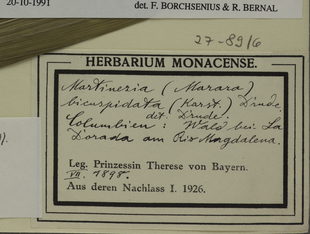 20-10-1991
det. F. BORCHSENIUS & R. BERNAL
27-89/6
HERBARIUM MONACENSE.
Martinezia (Marara)
bicuspidata (Karst.) Drude.
det. Drude.
Columbien: Wald bei La
Dorada am Rio Magdalena.
Leg. Prinzessin Therese von Bayern.
VII. 1898.
Aus deren Nachlass I. 1926.